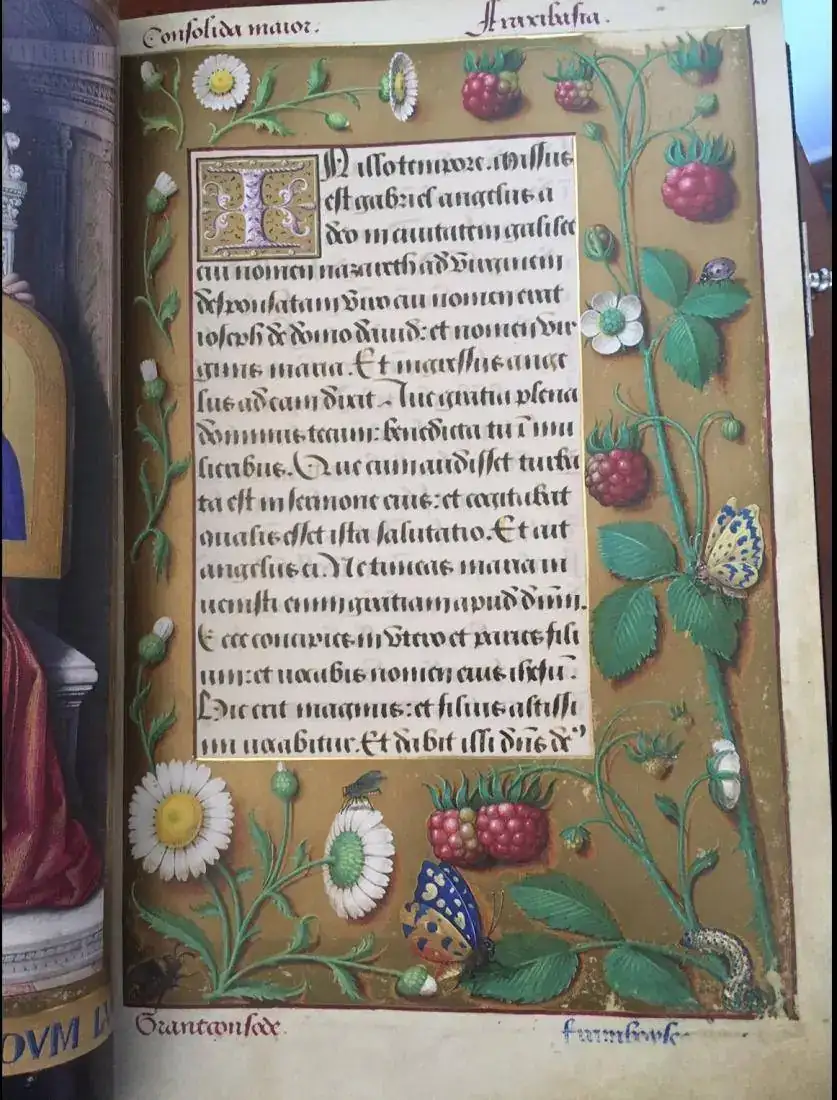 Consolida maior.
IN illo tempore. Missus
est gabriel angelus a
deo in ciuitatem galilee
cui nomen nazareth ad virginem
desponsatam viro cui nomen erat
ioseph de domo dauid: et nomen vir
ginis maria. Et ingressus ange
lus ad eam dixit. Aue gratia plena
dominus tecum: benedicta tu ī mu
lieribus. Que cum audisset turba
ta est in sermone eius: et cogitabat
qualis esset ista salutatio. Et ait
angelus ei. Ne timeas maria in
uenisti enim gratiam apud dn̄m.
Ecce concipies in vtero et paries fili
um: et uocabis nomen eius ihesū.
Hic erit magnus: et filius altissi
mi uocabitur. Et dabit illi dn̄s de⁹
Grant consode.
OVM